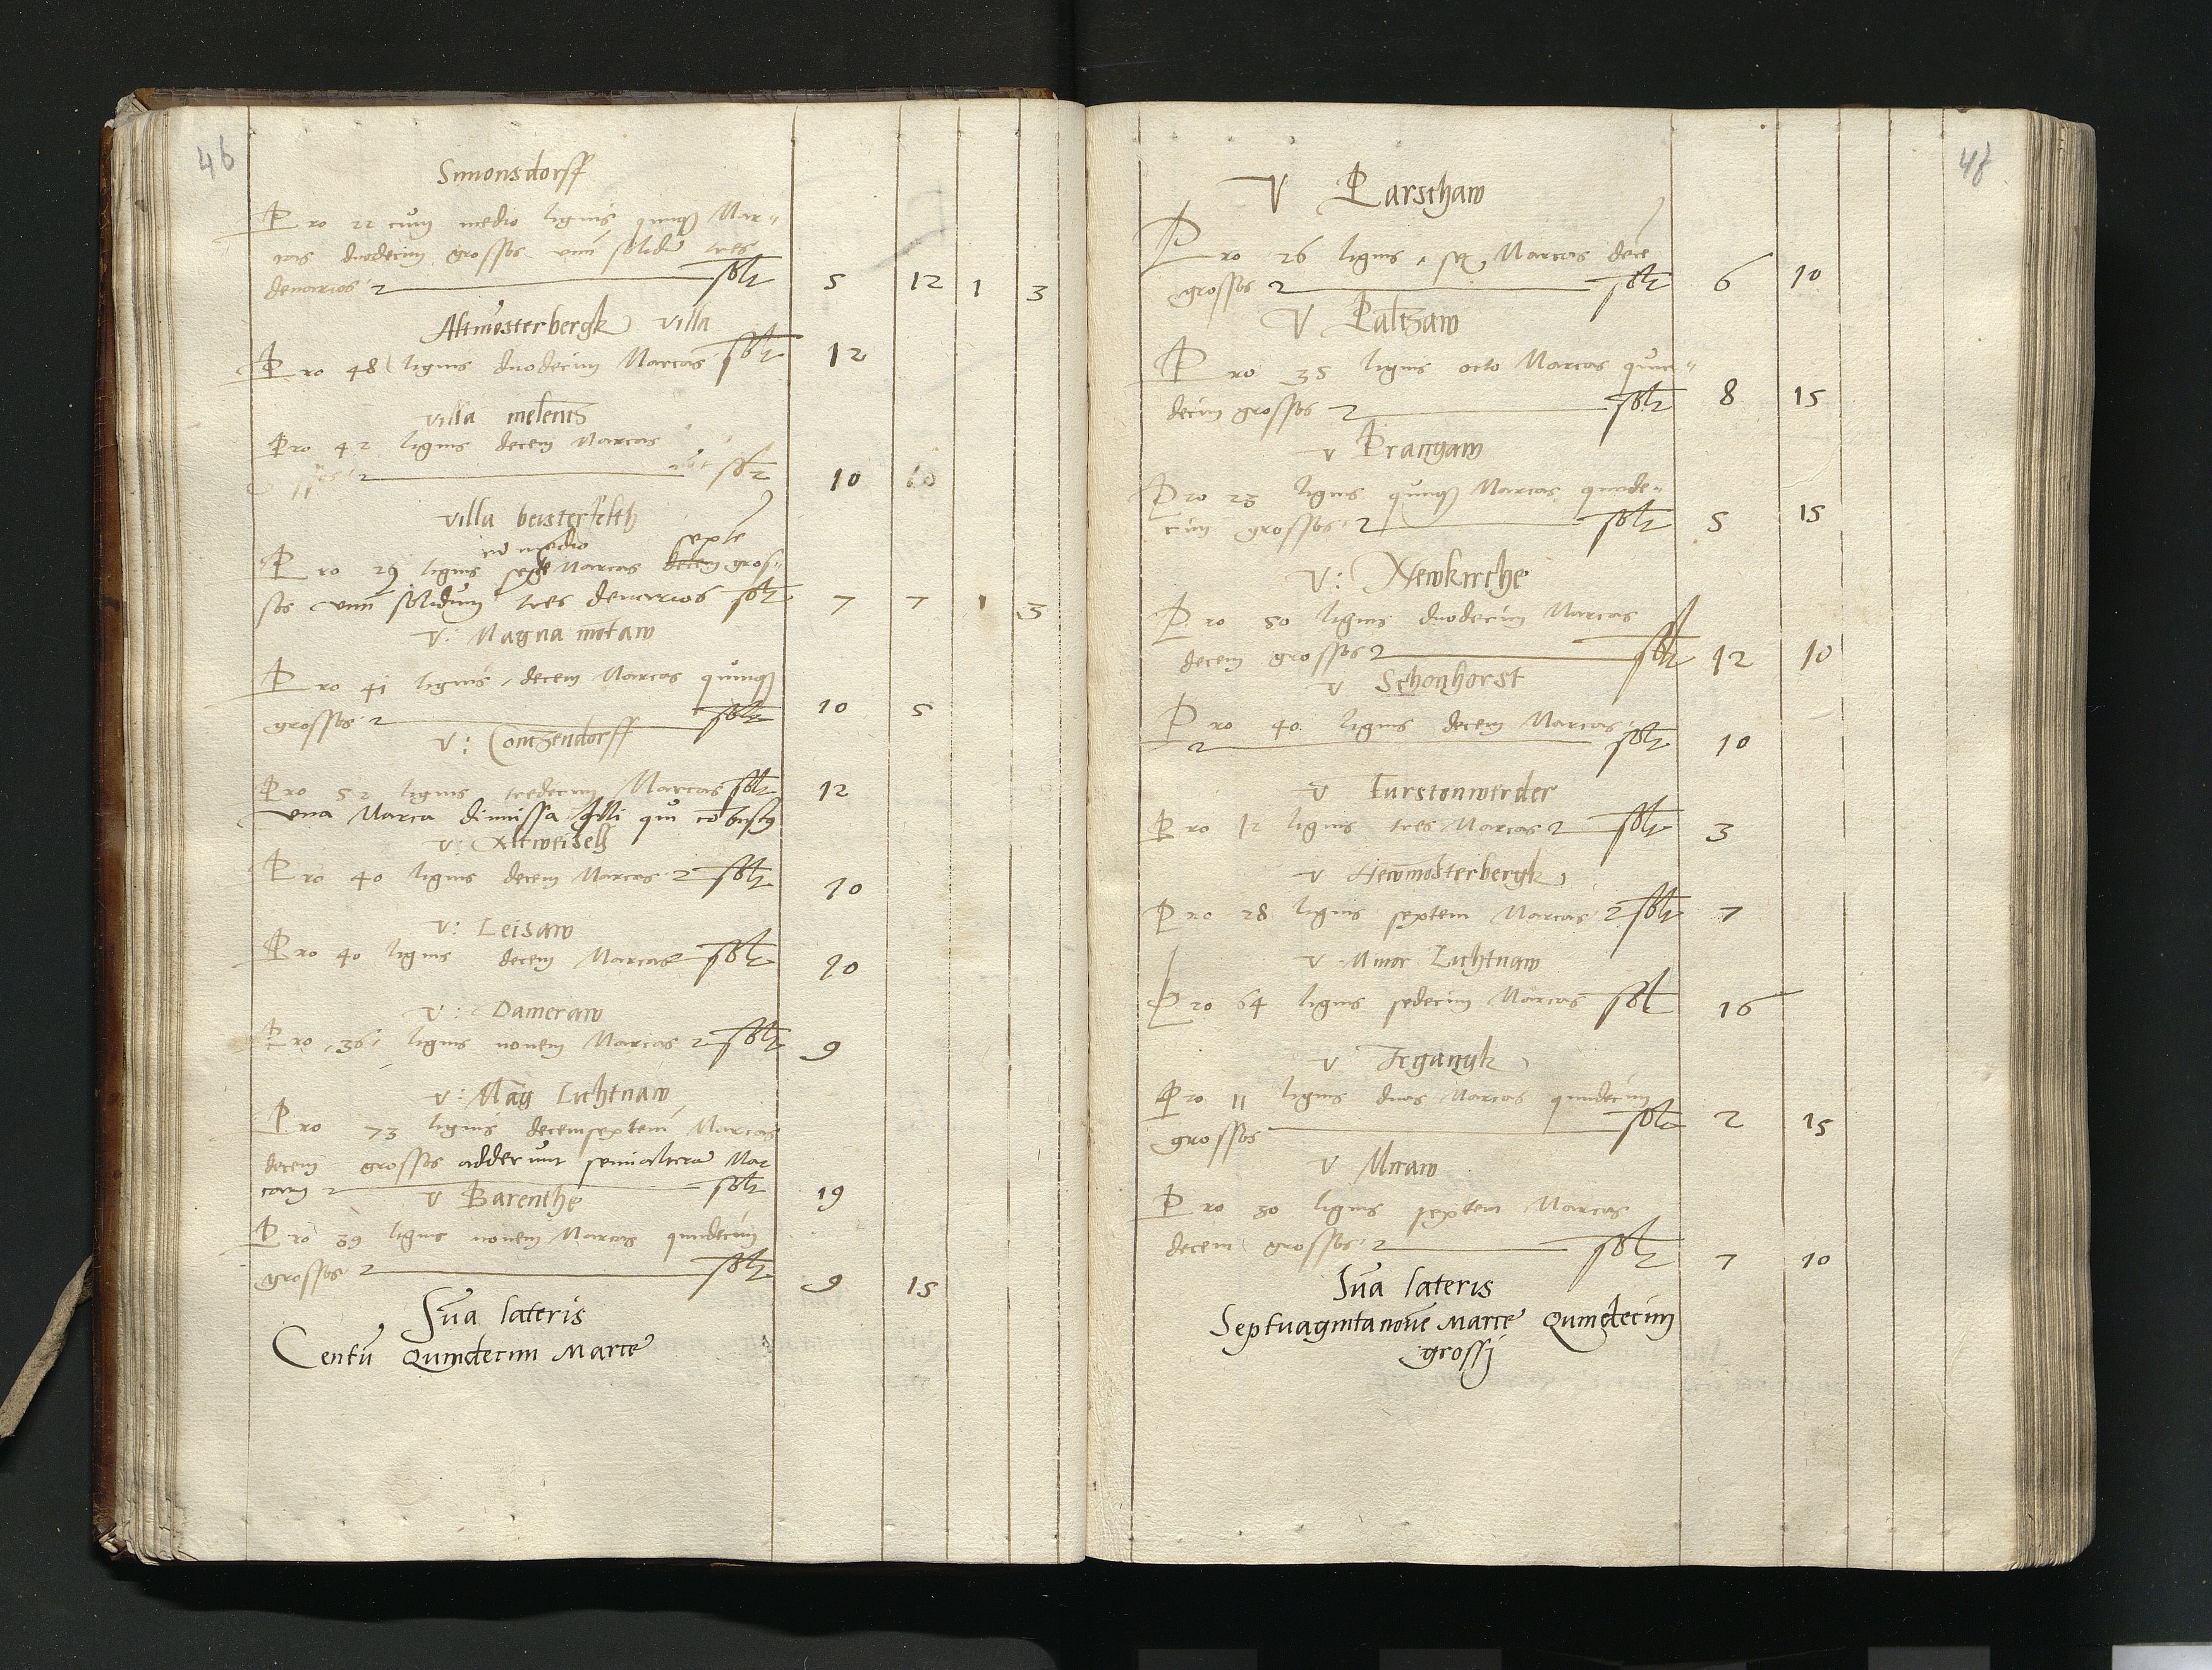 46
Simonsdorff
Pro 22 cum medio lignis quinqȝ Mar„
cas duodecim grossos unū solidū tres
denarios solt 5 12 1 3
Altmōsterbergk villa
Pro 48 lignis duodecim Marcas solt 12
villa mēlentz
Pro 42 lignis decem Marcas
solt 10 10
villa beisterfelth
cū medio septē
Pro 29 lignis septē Marcas decem gros„
sos unū solidum tres denarios solt 7 7 1 3
V: Magna mōtaw
Pro 41 lignis decem Marcas quinqȝ
grossos solt 10 5
V: Contzendorff
Pro 52 lignis tredecim Marcas solt 12
una Marca dimissa illi qui
V: Altweisels
Pro 40 lignis decem Marcas solt 10
V: Leisaw
Pro 40 lignis decem Marcas solt 10
V: Dameraw
Pro 36 lignis novem Marcas solt 9
V: Mag Lichtnaw
Pro 73 lignis decemseptem Marcas
decem grossos adderunt semialterā Mar
cam solt 19
V Barenthe
Pro 39 lignis novem Marcas quindecim
grossos solt 9 15
Sūa lateris
Centū Quindecim Marce
V Parschaw
Pro 26 lignis sex Marcas decē
grossos solt 6 10
V Paltzaw
Pro 35 lignis octo Marcas quin„
decim grossos solt 8 15
V Prangaw
Pro 23 lignis quinqȝ Marcas quinde„
cim grossos solt 5 15
V: Newkirche
Pro 50 lignis duodecim Marcas
decem grossos solt 12 10
V Schonhorst
Pro 40 lignis decem Marcas
solt 10
V Furstenwerder
Pro 12 lignis tres Marcas solt 3
V Newmōsterbergk
Pro 28 lignis septem Marcas solt 7
V Minor Lichtnaw
Pro 64 lignis sedecim Marcas solt 16
V Irgangk
Pro 11 lignis duas Marcas quindecim
grossos solt 2 15
V Miraw
Pro 30 lignis septem Marcas
decem grossos solt 7 10
Sūa lateris
Septuagintanovē Marce Quindecim
grossj